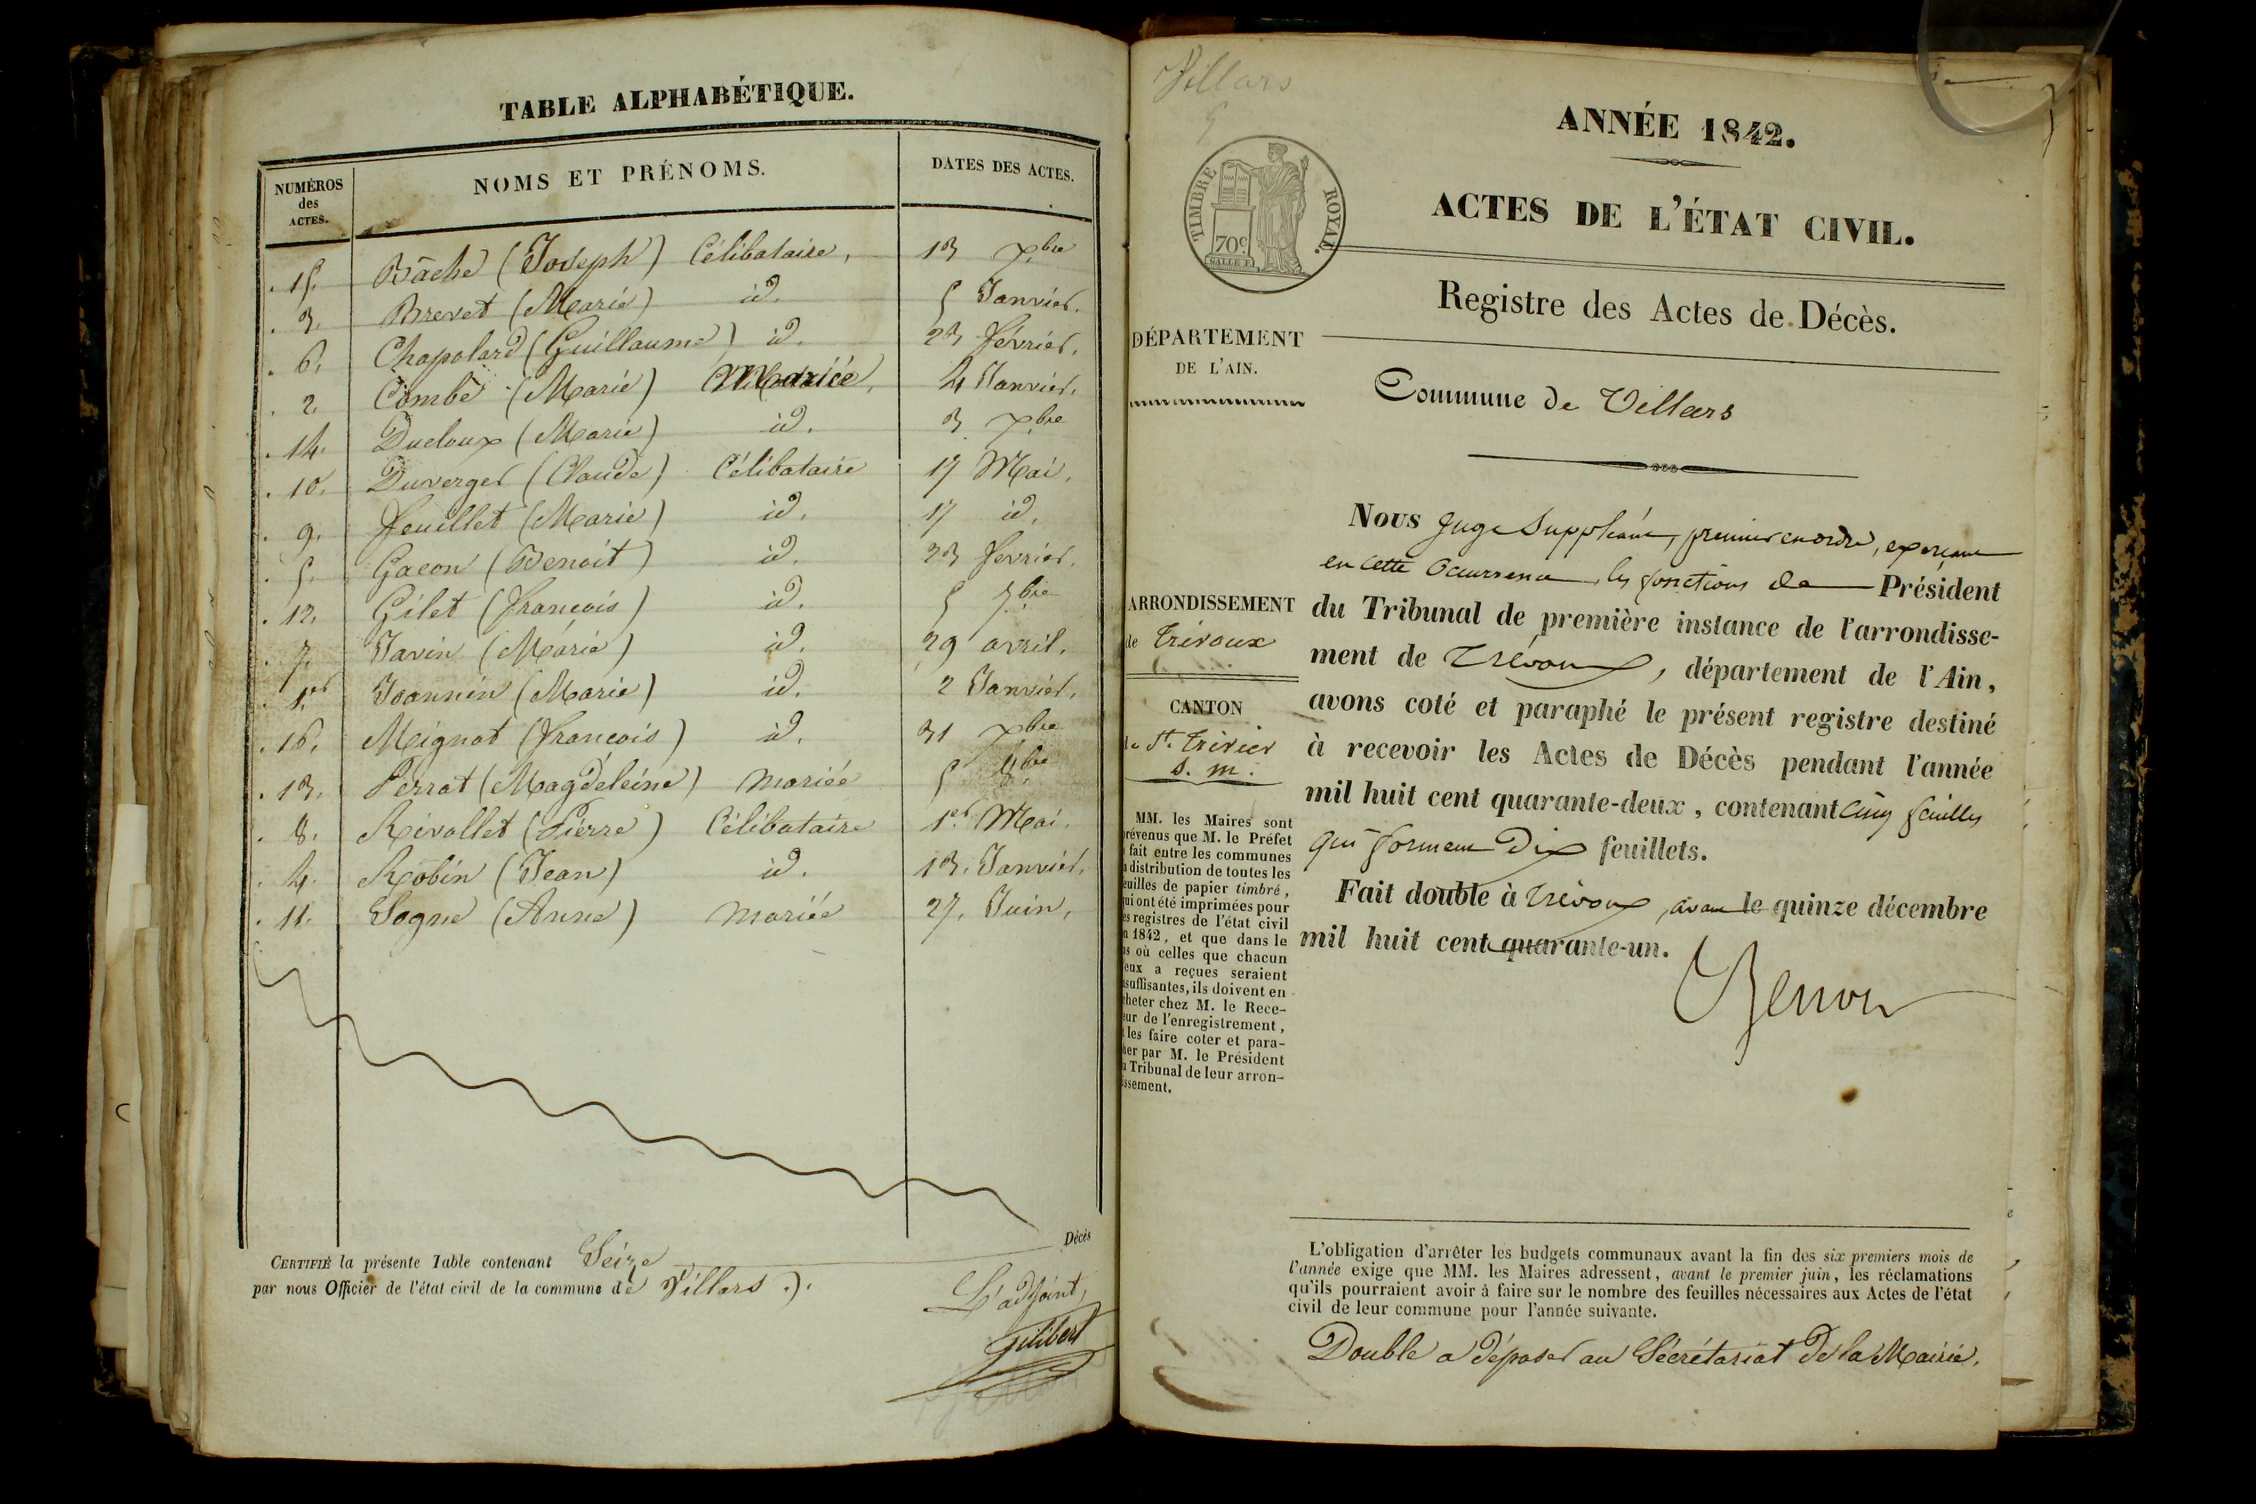 TABLE ALPHABÉTIQUE.
NUMÉROS des ACTES. NOMS ET PRÉNOMS. DATES DES ACTES.
15. Bâche (Joseph) Célibataire, 13 xbre
3. Brevet (Marie) id. 5 Janvier.
6. Chapolard (Guillaume) id. 23 février.
2. Combe (Marie) Mariée, 4 Janvier.
14. Ducloux (Marie) id. 3 xbre
10. Duverger (Claude) Célibataire 17 Mai.
9. Feuillet (Marie) id. 17 id.
5. Gacon (Benoit) id. 23 février.
12. Gilet (François) id. 5 7bre
7. Javin (Marie) id. 29 avril.
1er Joannin (Marie) id. 2 Janvier.
16. Meignat (François) id. 31 xbre
13. Perrat (Magdeleine) mariée 5 8bre
8. Rivollet (Pierre) Célibataire 1er Mai.
4. Robin (Jean) id. 13. Janvier.
11. Sogne (Anne) mariée 27. Juin,
Décès
CERTIFIÉ la présente Table contenant Seize
par nous Officier de l'état civil de la commune de Villars.
L'adjoint,
Gilibert
Villars
TIMBRE ROYAL.
70c.
SALLE F.
ANNÉE 1842.
ACTES DE L'ÉTAT CIVIL.
Registre des Actes de Décès.
DÉPARTEMENT
DE L'AIN.
Commune de Villars
ARRONDISSEMENT
de Trévoux
CANTON
de St. Trivier
s. m.
MM. les Maires sont
prévenus que M. le Préfet
fait entre les communes
distribution de toutes les
feuilles de papier timbré,
qui ont été imprimées pour
les registres de l'état civil
1842, et que dans le
où celles que chacun
a reçues seraient
insuffisantes, ils doivent en
acheter chez M. le Rece-
veur de l'enregistrement,
les faire coter et para-
pher par M. le Président
du Tribunal de leur arron-
dissement.
Nous Juge Suppléant, premier en ordre, exerçant
en cette occurrence les fonctions de Président
du Tribunal de première instance de l'arrondisse-
ment de Trévoux, département de l'Ain,
avons coté et paraphé le présent registre destiné
à recevoir les Actes de Décès pendant l'année
mil huit cent quarante-deux, contenant cinq feuilles
qui forment Dix feuillets.
Fait double à Trévoux, avant le quinze décembre
mil huit cent quarante-un.
L'obligation d'arrêter les budgets communaux avant la fin des six premiers mois de
l'année exige que MM. les Maires adressent, avant le premier juin, les réclamations
qu'ils pourraient avoir à faire sur le nombre des feuilles nécessaires aux Actes de l'état
civil de leur commune pour l'année suivante.
Double a déposer au Sécrétariat de la Mairie.